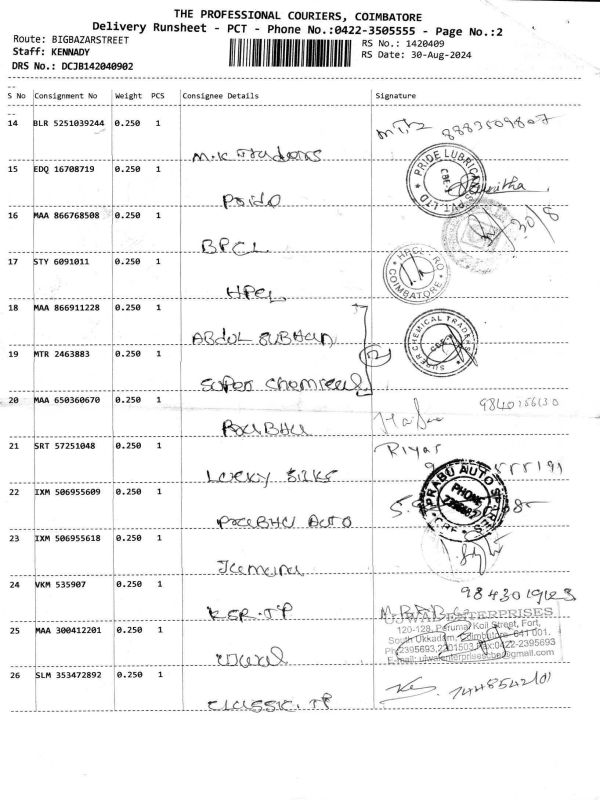 THE PROFESSIONAL COURIERS, COIMBATORE
Delivery Runsheet - PCT - Phone No.:0422-3505555 - Page No.:2
Route: BIGBAZARSTREET
RS No.: 1420409
Staff: KENNADY
RS Date: 30-Aug-2024
DRS No.: DCJB142040902
S No Consignment No Weight PCS Consignee Details Signature
14 BLR 5251039244 0.250 1
M.K Traders
8883509807
15 EDQ 16708719 0.250 1
PRIDE LUBRICANTS PVT LTD
CBE-1
16 MAA 866768508 0.250 1
BPCL
30/8
17 STY 6091011 0.250 1
HPCL RO
COIMBATORE
HPCL
18 MAA 866911228 0.250 1
ABDUL SUBHAN
SUPER CHEMICAL TRADERS
19 MTR 2463883 0.250 1
Super Chemical
20 MAA 650360670 0.250 1
PRABHU
21 SRT 57251048 0.250 1
Riyas
LUCKY SILKS
22 IXM 506955609 0.250 1
PRABU AUTO SPARES
PHONE
CBE
PRABHU AUTO
23 IXM 506955618 0.250 1
24 VKM 535907 0.250 1
KGR.TP
25 MAA 300412201 0.250 1
UJWAL ENTERPRISES
120-128, Perumal Koil Street, Fort,
South Ukkadam, Coimbatore-641 001.
Ph:2395693,2201503,Fax:0422-2395693
E-mail: ujwalenterprisescbe@gmail.com
Ujwal
26 SLM 353472892 0.250 1
CLASSIC.TP